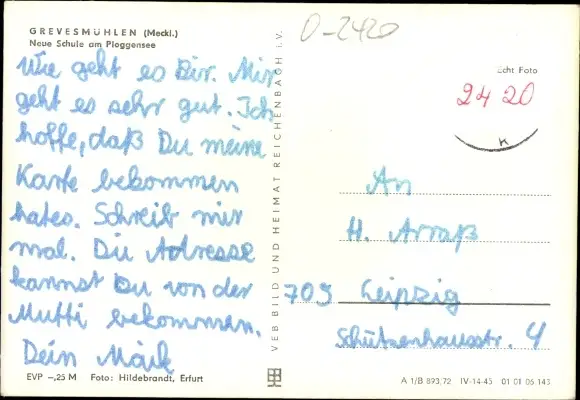 GREVESMÜHLEN (Meckl.)
Neue Schule am Ploggensee
Wie geht es Dir. Mir
geht es sehr gut. Ich
hoffe, daß Du meine
Karte bekommen
hates. Schreib mir
mal. Die Adresse
kannst Du von der
Mutti bekommen.
Dein Maik
EVP –,25 M Foto: Hildebrandt, Erfurt
VEB BILD UND HEIMAT REICHENBACH i. V.
0-2420
Echt Foto
2420
K
An
H. Arraß
705 Leipzig
Schützenhausstr. 4
A 1/B 893/72 IV-14-45 01 01 05 143